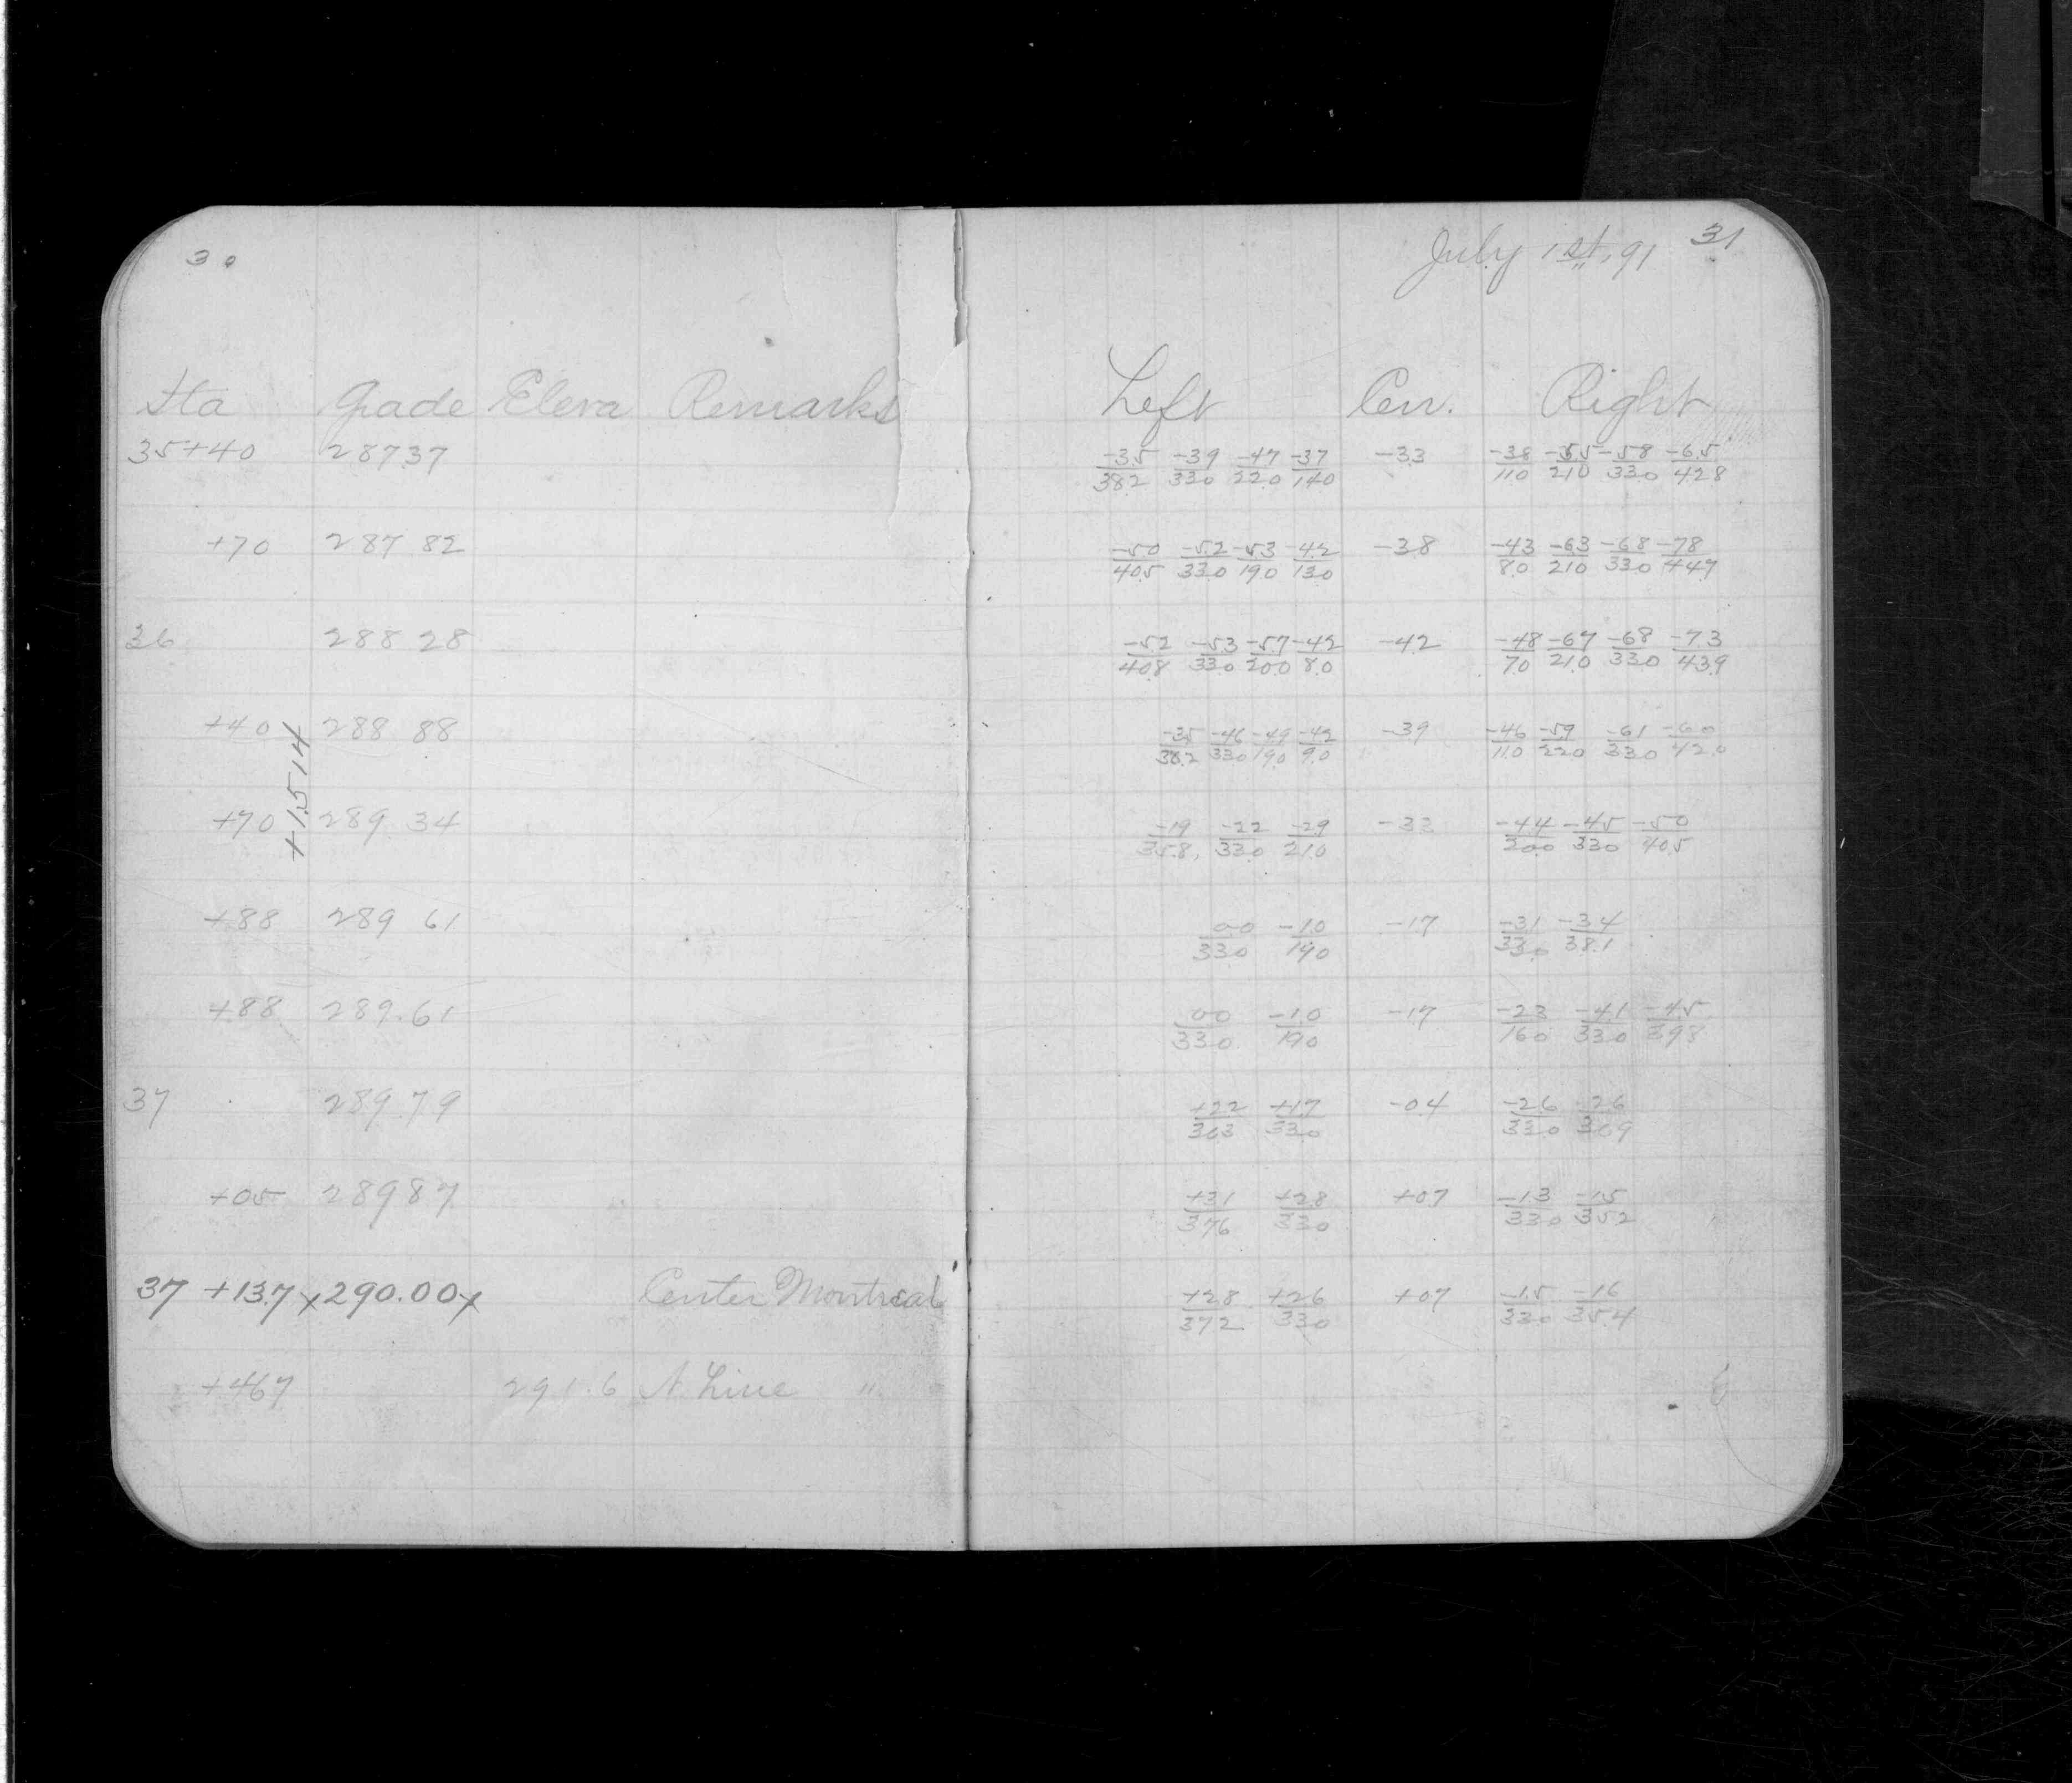 30
Sta Grade Eleva Remarks
35+40 287.37
+70 287 82
36 288 28
+40 288 88
+1.514
+70 289 34
+88 289 61
+88 289.61
37 289.79
+05 289 87
37 +13.7 x 290.00 x Center Montreal
+46.7 291.6 N. Line "
July 1st, 91 31
Left Cen. Right
-3.5/38.2 -3.9/33.0 -4.7/22.0 -3.7/14.0 -3.3 -3.8/11.0 -5.5/21.0 -5.8/33.0 -6.5/42.8
-5.0/40.5 -5.2/33.0 -5.3/19.0 -4.2/13.0 -3.8 -4.3/8.0 -6.3/21.0 -6.8/33.0 -7.8/44.7
-5.2/40.8 -5.3/33.0 -5.7/20.0 -4.2/8.0 -4.2 -4.8/7.0 -6.7/21.0 -6.8/33.0 -7.3/43.9
-3.5/38.2 -4.6/33.0 -4.9/19.0 -4.2/9.0 -3.9 -4.6/11.0 -5.9/22.0 -6.1/33.0 -6.0/42.0
-1.9/35.8 -2.2/33.0 -2.9/21.0 -3.3 -4.4/20.0 -4.5/33.0 -5.0/40.5
0.0/33.0 -1.0/19.0 -1.7 -3.1/33.0 -3.4/38.1
0.0/33.0 -1.0/19.0 -1.7 -2.3/16.0 -4.1/33.0 -4.5/39.8
+2.2/36.3 +1.7/33.0 -0.4 -2.6/33.0 -2.6/36.9
+3.1/37.6 +2.8/33.0 +0.7 -1.3/33.0 -1.5/35.2
+2.8/37.2 +2.6/33.0 +0.7 -1.5/33.0 -1.6/35.4